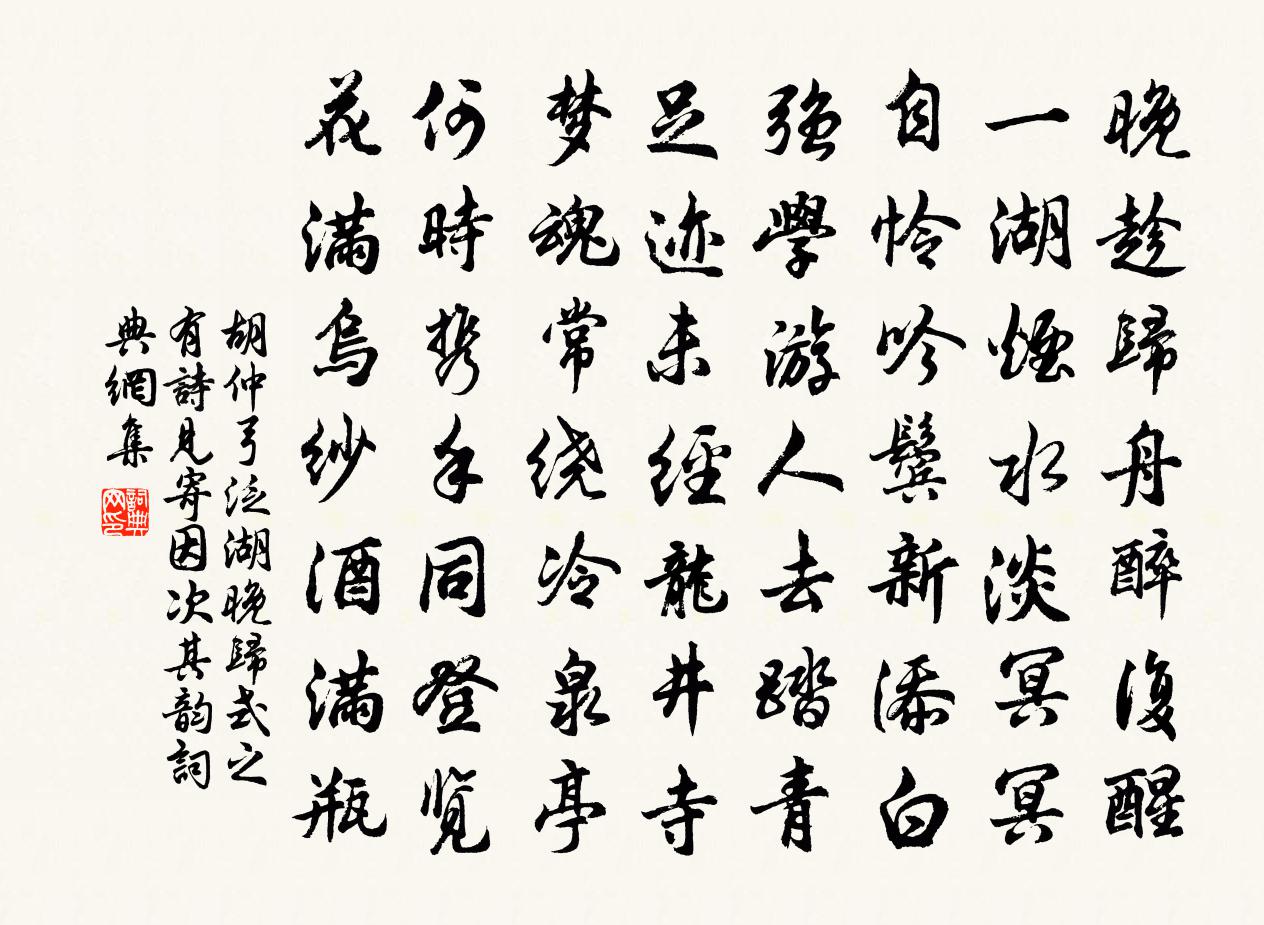 晚趁歸舟醉復醒
一湖煙水淡冥冥
自怜吟鬢新添白
強學游人去踏青
足迹未經龍井寺
梦魂常绕冷泉亭
何時携手同登览
花满烏纱酒满瓶
胡仲弓泛湖晚歸式之
有詩見寄因次其韵詞
典網集
詞典网印